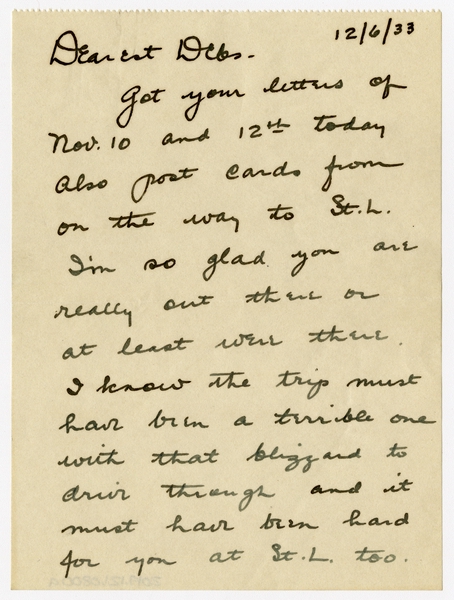 12/6/33
Dearest Debs -
Got your letters of
Nov. 10 and 12th today
also post cards from
on the way to St. L.
I'm so glad you are
really out there or
at least were there.
I know the trip must
have been a terrible one
with that blizzard to
drive through and it
must have been hard
for you at St. L. too.